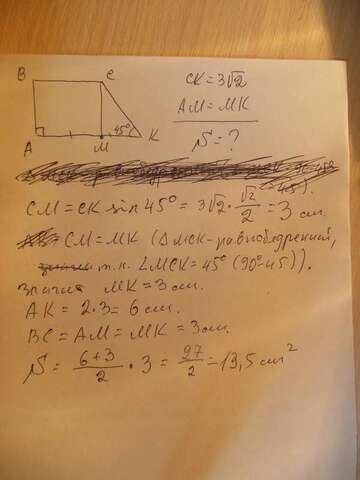 B
C
A
M
K
45°
CK = 3√2
AM = MK
S = ?
45).
CM = CK sin 45° = 3√2 · √2/2 = 3 см.
CM = MK (Δ MCK - равнобедренный,
т.к. ∠MCK = 45° (90-45)).
значит MK = 3 см.
AK = 2·3 = 6 см.
BC = AM = MK = 3 см.
S = 6+3/2 · 3 = 27/2 = 13,5 см²